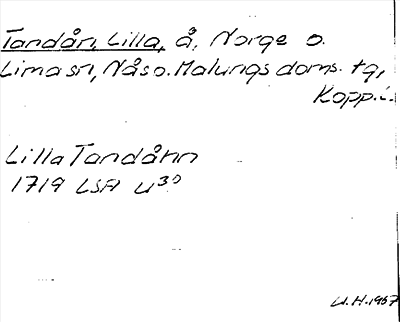 Tandån, Lilla, å, Norge o.
Lima sn, Nås o. Malungs doms. tg,
Kopp. l.
Lilla Tandåhn
1719 LSA U30
U.H. 1967